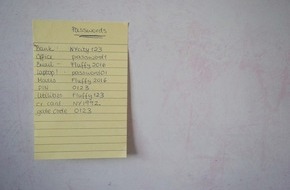 Passwords
Bank -
Office password1
Email - Fluffy2016
Laptop! password01
Fluffy2016
PIN 0123
Fluffy123
cr. card NY1992
gate code 0123